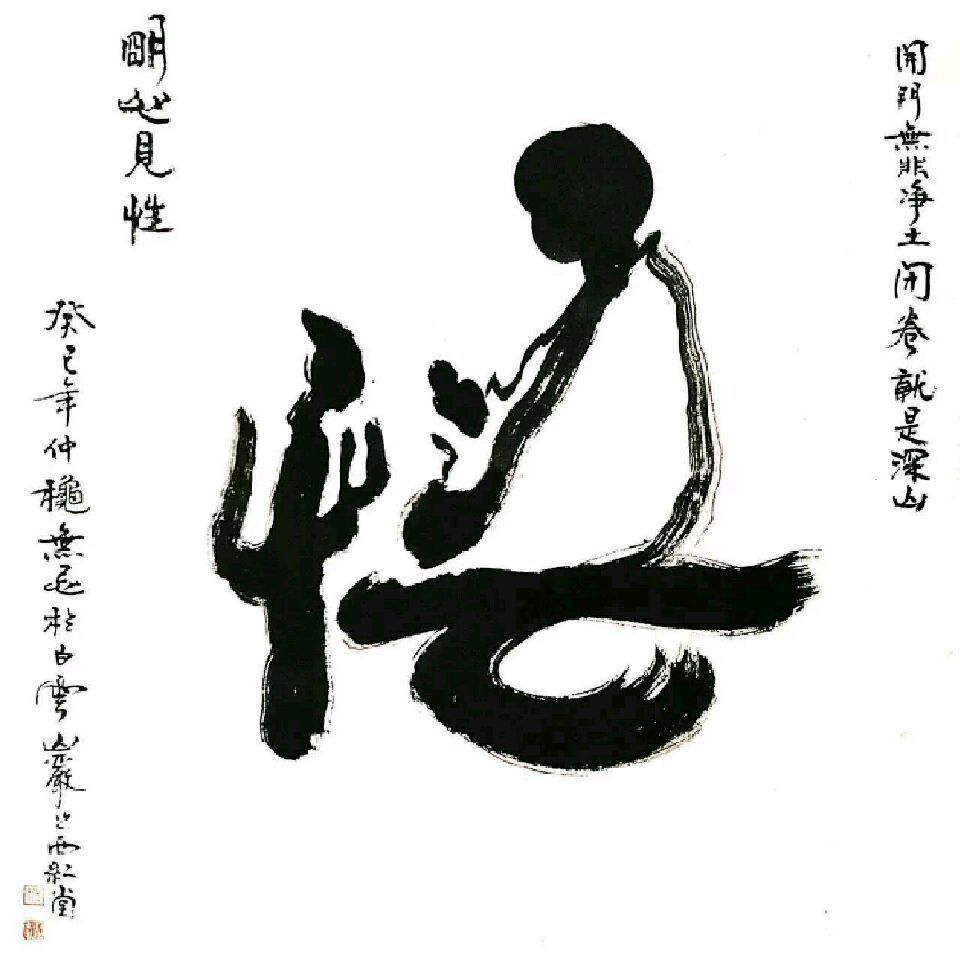 開門無非淨土開卷就是深山
明心見性
癸巳年仲穐無忌於白雲巖之西紅堂